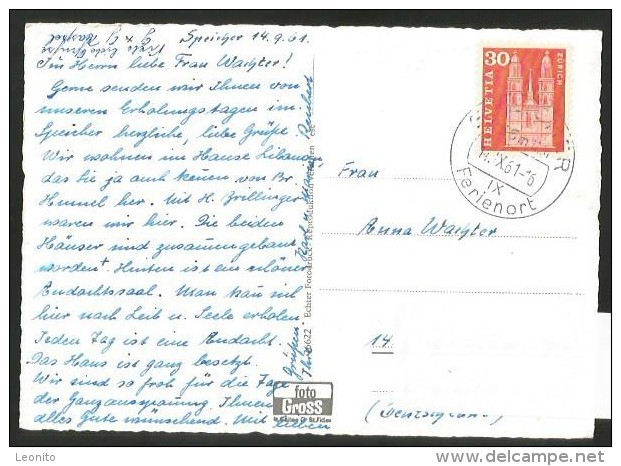 Speicher 14.9.61.
Im Herrn liebe Frau Wachter!
Gerne senden wir Ihnen von
unseren Erholungstagen im
Speicher herzliche, liebe Grüße.
Wir wohnen im Hause Libanon
das Sie ja auch kennen von Br.
Hummel her. Mit H. Zrillinger
waren wir hier. Die beiden
Häuser sind zusammengebaut
worden. Hinten ist ein schöner
Andachtssaal. Man kann sich
hier nach Leib u. Seele erholen.
Jeden Tag ist eine Andacht.
Das Haus ist ganz besetzt.
Wir sind so froh für die Tage
der Ganzausspannung. Ihnen
alles Gute wünschend. Mit lieben
Grüßen
Ihre
Karl u. Maria
Viele liebe Grüße
6622 Echter Fotodruck
foto
Gross
St. Gallen
30
HELVETIA
ZÜRICH
IX.61-16
IX
Ferienort
Frau
Anna Wachter
14